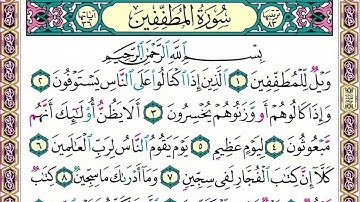 سُورَةُ المُطَفِّفِينَ
بِسْمِ ٱللَّهِ ٱلرَّحْمَٰنِ ٱلرَّحِيمِ
وَيْلٌ لِّلْمُطَفِّفِينَ ١ ٱلَّذِينَ إِذَا ٱكْتَالُوا۟ عَلَى ٱلنَّاسِ يَسْتَوْفُونَ ٢
وَإِذَا كَالُوهُمْ أَو وَّزَنُوهُمْ يُخْسِرُونَ ٣ أَلَا يَظُنُّ أُو۟لَٰٓئِكَ أَنَّهُم
مَّبْعُوثُونَ ٤ لِيَوْمٍ عَظِيمٍ ٥ يَوْمَ يَقُومُ ٱلنَّاسُ لِرَبِّ ٱلْعَٰلَمِينَ ٦
كَلَّآ إِنَّ كِتَٰبَ ٱلْفُجَّارِ لَفِى سِجِّينٍ ٧ وَمَآ أَدْرَىٰكَ مَا سِجِّينٌ ٨ كِتَٰبٌ